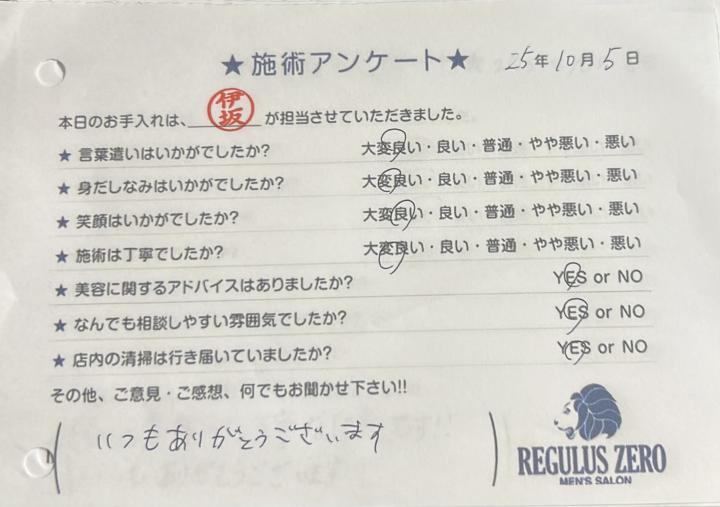 ★施術アンケート★ 25年10月5日
本日のお手入れは、伊坂が担当させていただきました。
★ 言葉遣いはいかがでしたか? 大変良い・良い・普通・やや悪い・悪い
★ 身だしなみはいかがでしたか? 大変良い・良い・普通・やや悪い・悪い
★ 笑顔はいかがでしたか? 大変良い・良い・普通・やや悪い・悪い
★ 施術は丁寧でしたか? 大変良い・良い・普通・やや悪い・悪い
★ 美容に関するアドバイスはありましたか? YES or NO
★ なんでも相談しやすい雰囲気でしたか? YES or NO
★ 店内の清掃は行き届いていましたか? YES or NO
その他、ご意見・ご感想、何でもお聞かせ下さい!!
いつもありがとうございます
REGULUS ZERO
MEN'S SALON